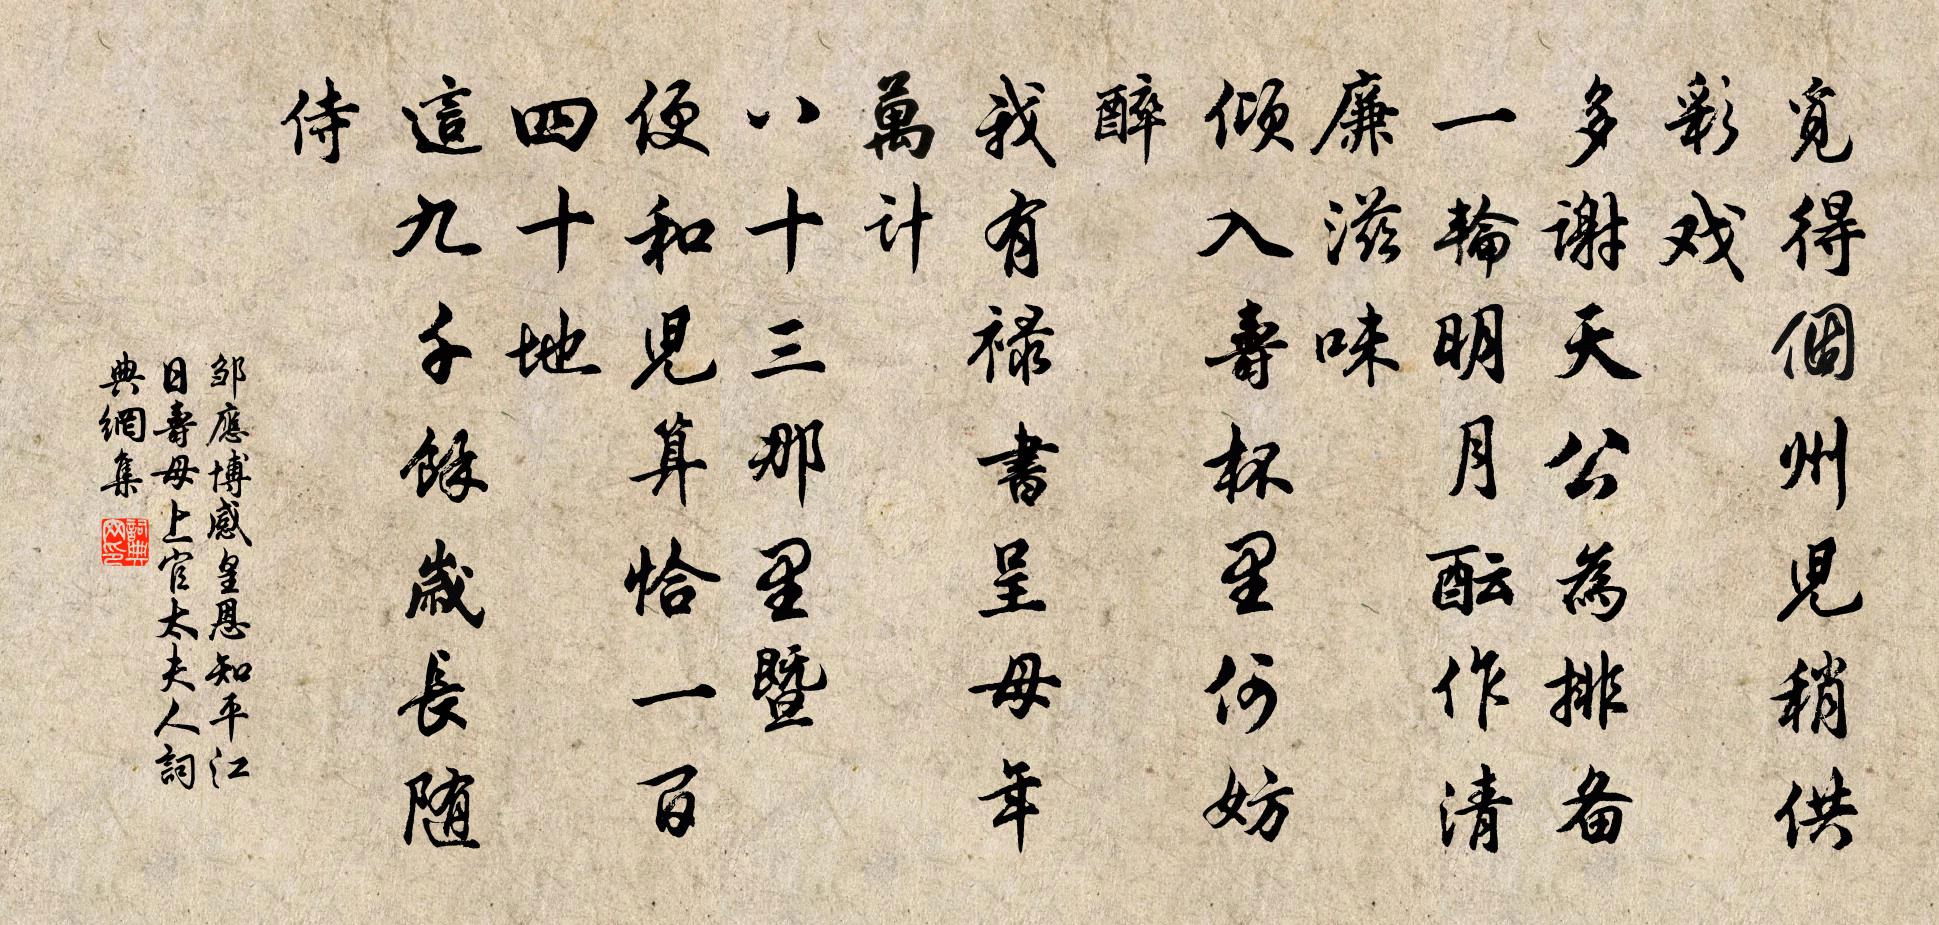 覓得個州兒稍供
彩戏
多謝天公為排备
一輪明月酝作清
廉滋味
倾入壽杯里何妨
醉
我有禄書呈母年
萬计
八十三那里暨
便和兒算恰一百
四十地
這九千餘歲長随
侍
邹應博感皇恩知平江
日壽母上官太夫人詞
典網集
詞典
网印